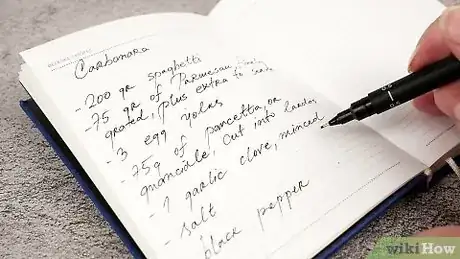 Carbonara
- 200 gr spaghetti
- 75 gr of Parmesan,
grated, plus extra to
- 3 egg yolks
- 75g of pancetta, or
guanciale, cut into lardon
- 1 garlic clove, minced
- salt
- black pepper
wikiHow